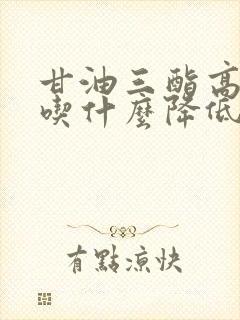 甘油三酯高
喫什麼降低
有點涼快